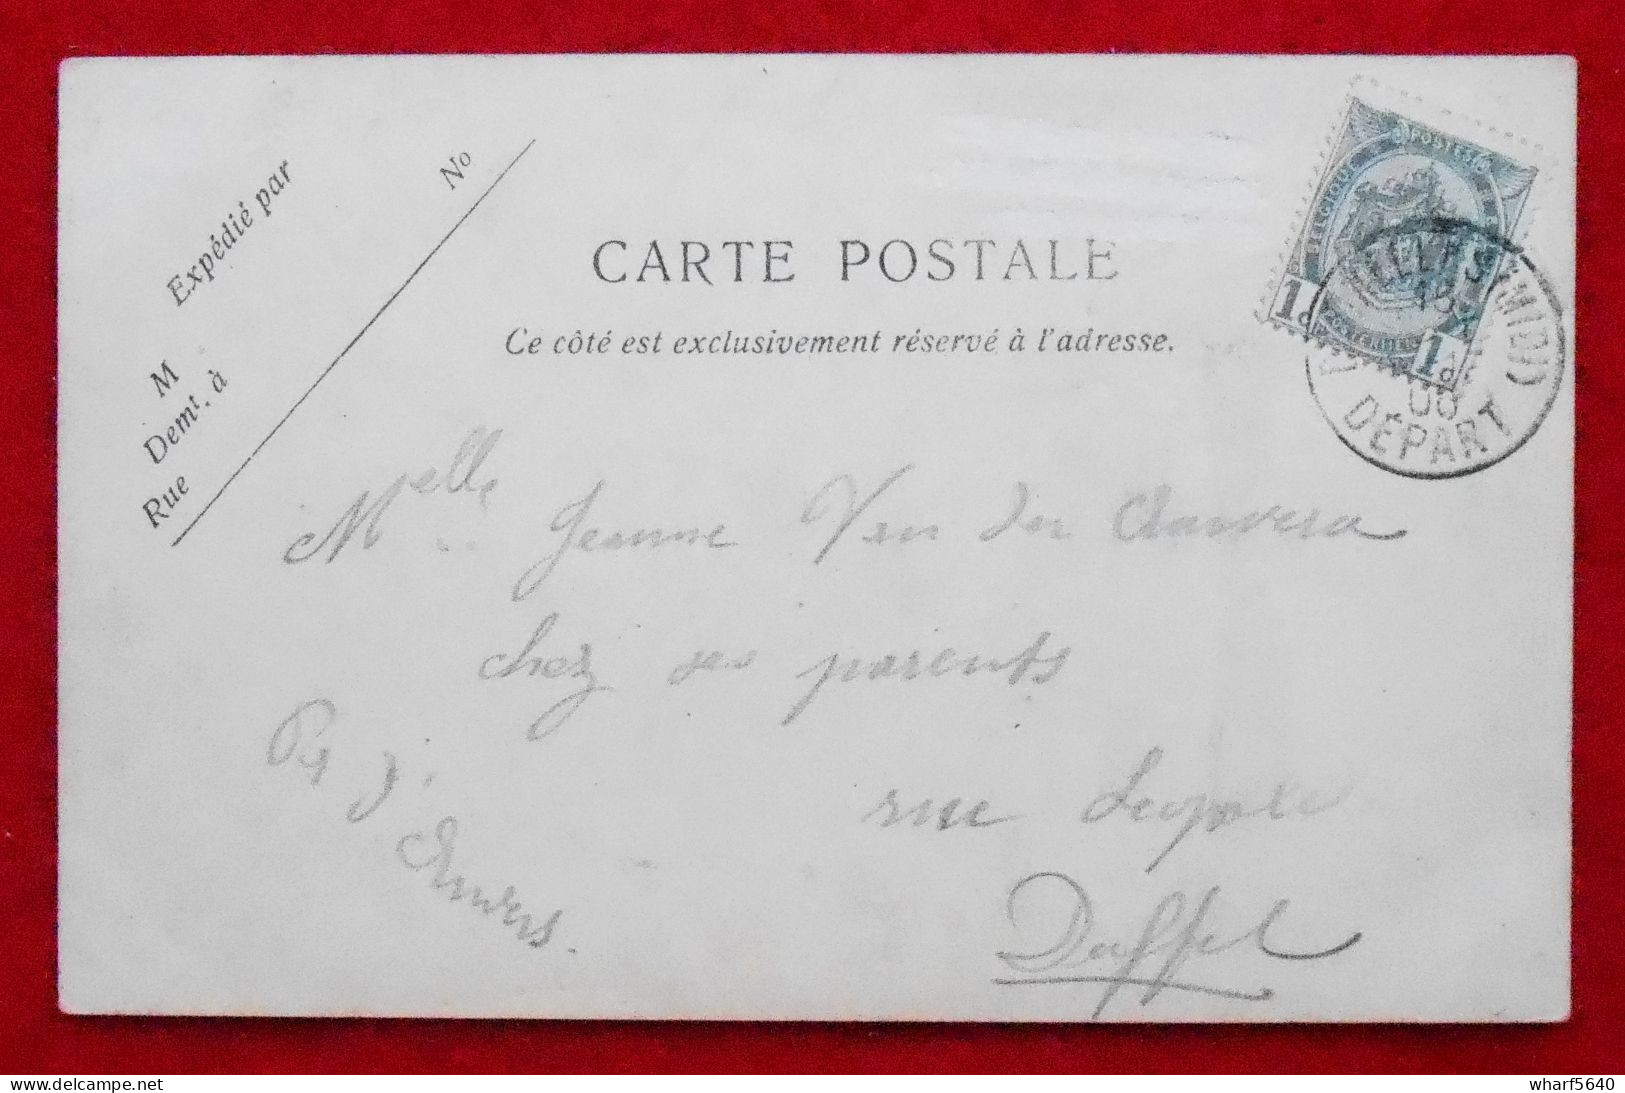 Expédié par
M
Demt. à
Rue
No
CARTE POSTALE
Ce côté est exclusivement réservé à l'adresse.
POSTES
BELGIQUE
1c 1c
(MIDI)
DÉPART
Melle Jeanne Van der
chez ses parents
rue Leopold
Duffel
Anvers.
delcampe.net
wharf5640